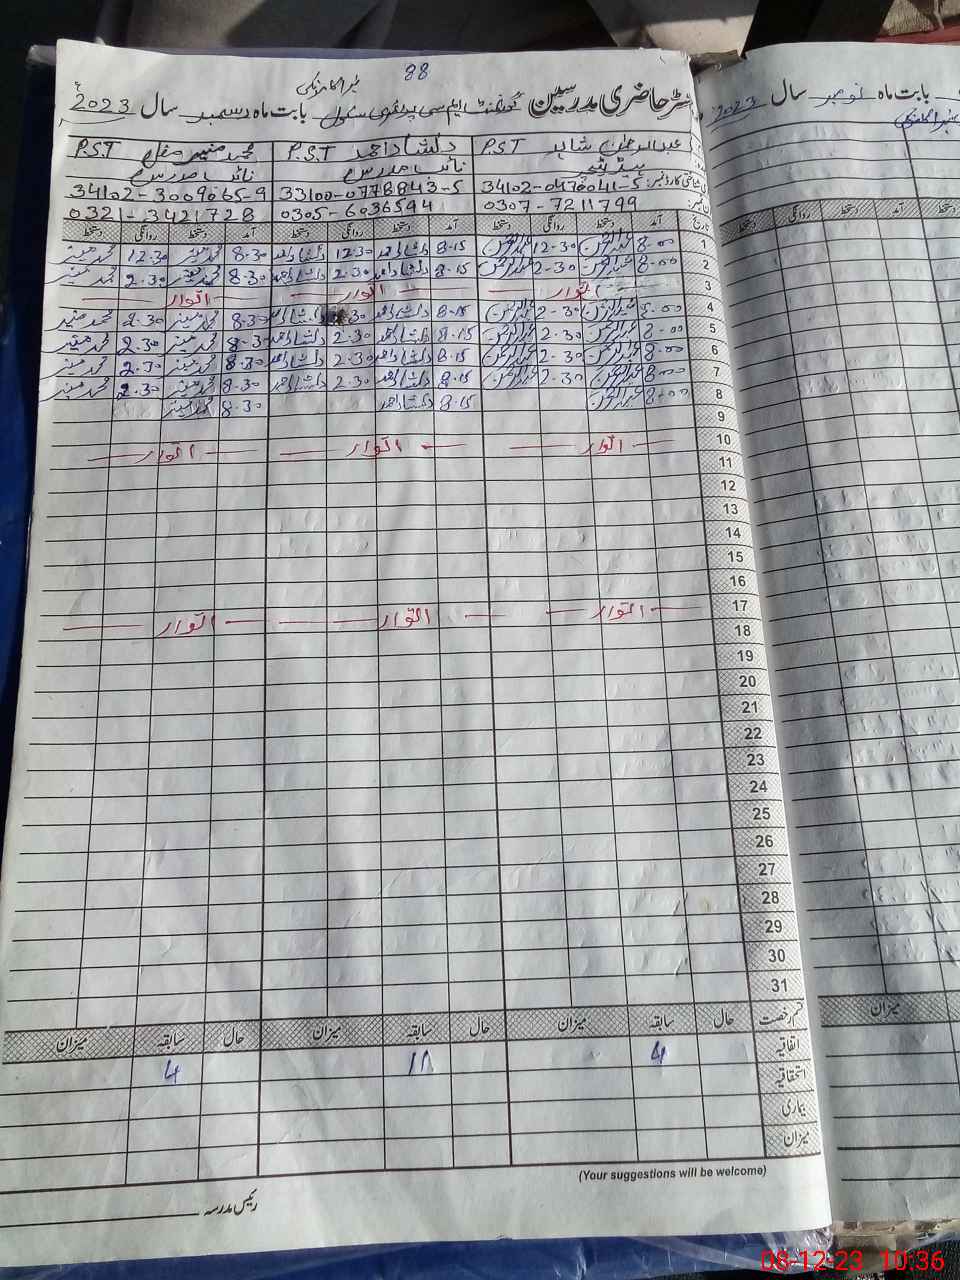 88
رجسٹر حاضری مدرسین گورنمنٹ ایم سی پرائمری سکول بابت ماہ دسمبر سال 2023
عبدالرحمٰن شاہد P.S.T دلشاد احمد P.S.T محمد منیر مغل P.S.T
ہیڈ ٹیچر نائب مدرس نائب مدرس
شناختی کارڈ نمبر: 34102-0470041-5 33100-0778843-5 34102-3009065-9
0307-7211799 0305-6036594 0321-3421728
تاریخ آمد دستخط روانگی دستخط آمد دستخط روانگی دستخط آمد دستخط روانگی دستخط
1 8.00 عبدالرحمٰن 12-30 عبدالرحمٰن 8.15 دلشاد احمد 12.30 دلشاد احمد 8.30 محمد منیر 12.30 محمد منیر
2 8.00 عبدالرحمٰن 2-30 عبدالرحمٰن 8.15 دلشاد احمد 2.30 دلشاد احمد 8.30 محمد منیر 2.30 محمد منیر
3 اتوار اتوار اتوار
4 8.00 عبدالرحمٰن 2-30 عبدالرحمٰن 8.15 دلشاد احمد 30 دلشاد احمد 8.30 محمد منیر 2.30 محمد منیر
5 8.00 عبدالرحمٰن 2-30 عبدالرحمٰن 8.15 دلشاد احمد 2.30 دلشاد احمد 8.30 محمد منیر 2.30 محمد منیر
6 8.00 عبدالرحمٰن 2-30 عبدالرحمٰن 8.15 دلشاد احمد 2.30 دلشاد احمد 8.30 محمد منیر 2.30 محمد منیر
7 8.00 عبدالرحمٰن 2-30 عبدالرحمٰن 8.15 دلشاد احمد 2.30 دلشاد احمد 8.30 محمد منیر 2.30 محمد منیر
8 8.00 عبدالرحمٰن 8.15 دلشاد احمد 8.30 محمد منیر
9
10 اتوار اتوار اتوار
11
12
13
14
15
16
17 اتوار اتوار اتوار
18
19
20
21
22
23
24
25
26
27
28
29
30
31
قسم رخصت حال سابقہ میزان حال سابقہ میزان حال سابقہ میزان
اتفاقیہ 4 11 4
استحقاقیہ
بیماری
میزان
(Your suggestions will be welcome)
رئیس مدرسہ
بابت ماہ نومبر سال 2023
روانگی دستخط آمد دستخط
میزان
08-12-23 10:36